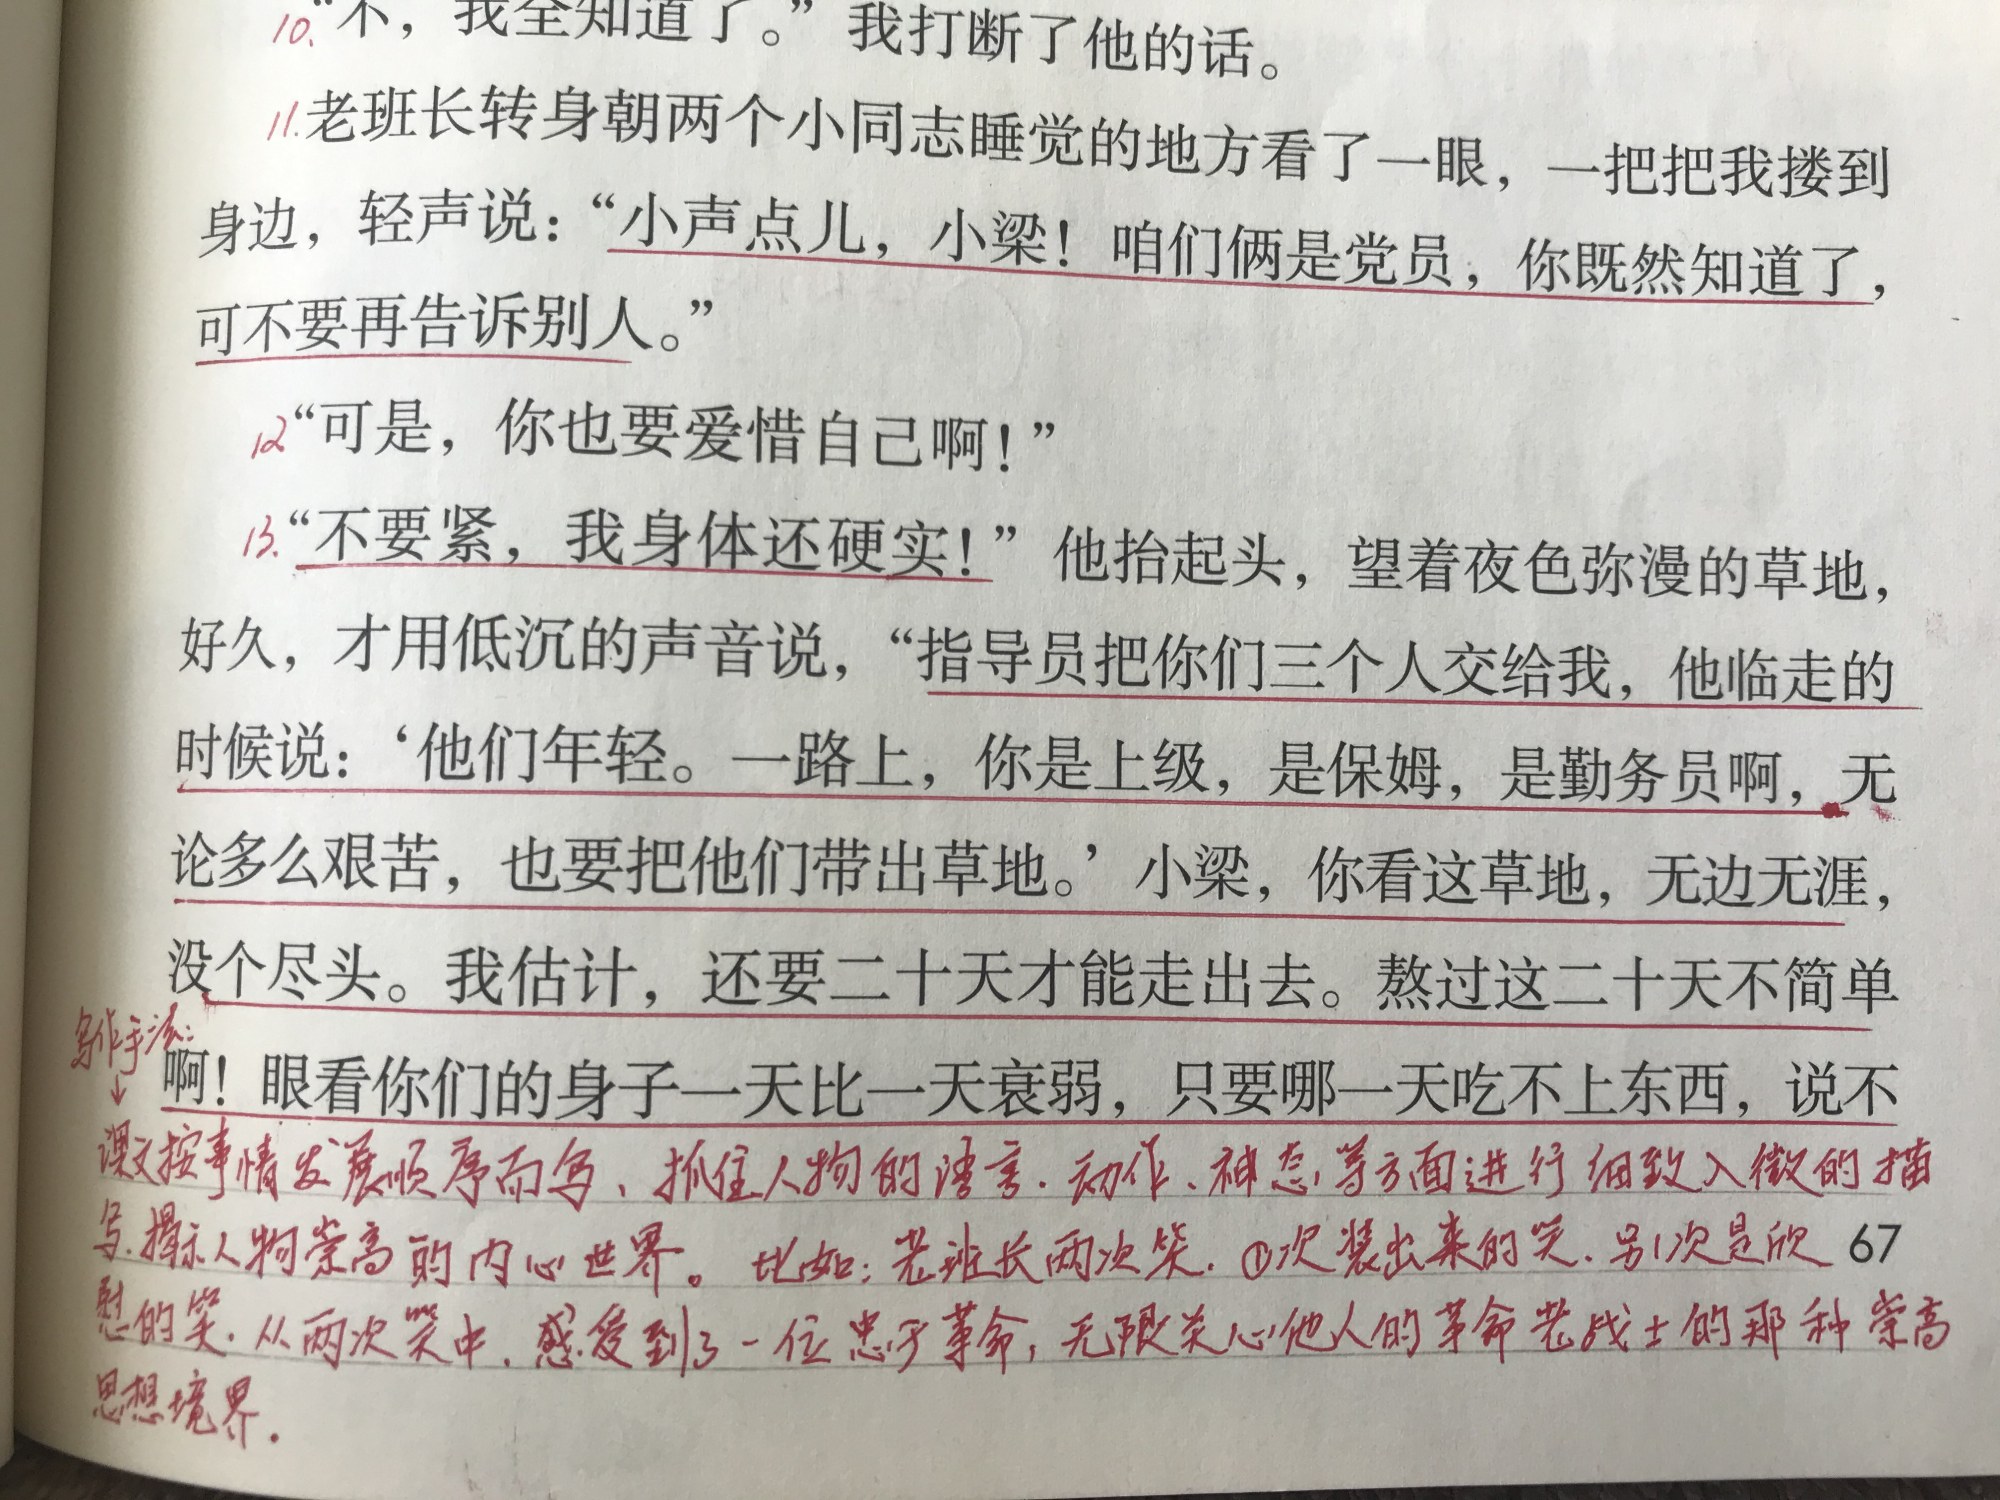 10.“不，我全知道了。”我打断了他的话。
11.老班长转身朝两个小同志睡觉的地方看了一眼，一把把我搂到
身边，轻声说：“小声点儿，小梁！咱们俩是党员，你既然知道了，
可不要再告诉别人。”
12“可是，你也要爱惜自己啊！”
13.“不要紧，我身体还硬实！”他抬起头，望着夜色弥漫的草地，
好久，才用低沉的声音说，“指导员把你们三个人交给我，他临走的
时候说：‘他们年轻。一路上，你是上级，是保姆，是勤务员啊，无
论多么艰苦，也要把他们带出草地。’小梁，你看这草地，无边无涯，
没个尽头。我估计，还要二十天才能走出去。熬过这二十天不简单
写作手法：
啊！眼看你们的身子一天比一天衰弱，只要哪一天吃不上东西，说不
↓
课文按事情发展顺序而写、抓住人物的语言.动作、神态等方面进行细致入微的描
写.揭示人物崇高的内心世界。比如：老班长两次笑.①次装出来的笑.另1次是欣
67
慰的笑.从两次笑中.感受到了一位忠于革命，无限关心他人的革命老战士的那种崇高
思想境界.